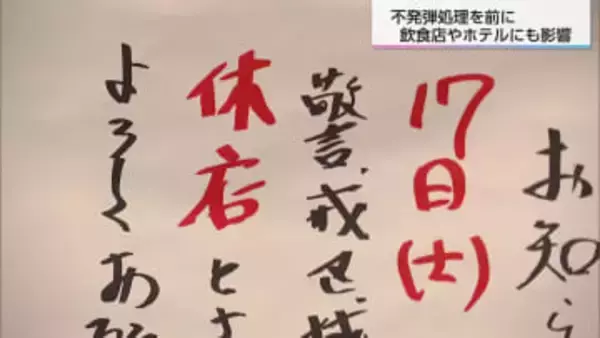 不発弾処理を前に
飲食店やホテルにも影響
お知ら
17日(土)
警戒区域
休店とさ
よろしくお願